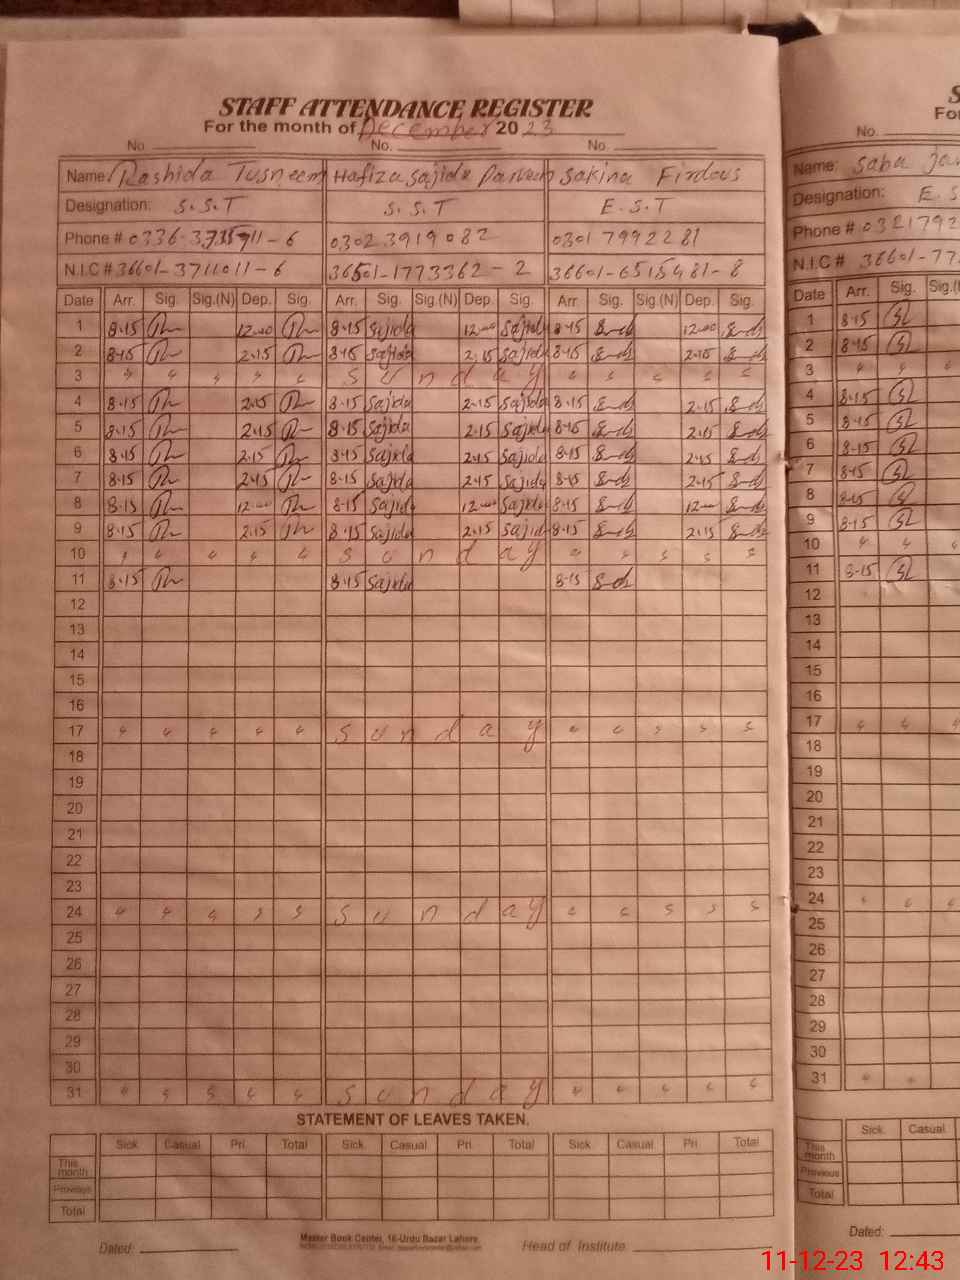 STAFF ATTENDANCE REGISTER
For the month of December 2023
No. No. No.
Name: Rashida Tusneem Hafiza Sajida Parveen Sakina Firdous
Designation: S.S.T S.S.T E.S.T
Phone # 0336- -6 0302 3919082 0301 7992281
N.I.C # 36601-3711011-6 36501-1773362-2 36601-6515481-8
Date Arr. Sig. Sig.(N) Dep. Sig. Arr. Sig. Sig.(N) Dep. Sig. Arr. Sig. Sig.(N) Dep. Sig.
1 8-15 12-00 8-15 Sajida 12-00 Sajida 8-15 12-00
2 8-15 2-15 8-15 Sajida 2-15 Sajida 8-15 2-15
3 Sunday
4 8-15 2-15 8-15 Sajida 2-15 Sajida 8-15 2-15
5 8-15 2-15 8-15 Sajida 2-15 Sajida 8-15 2-15
6 8-15 2-15 8-15 Sajida 2-15 Sajida 8-15 2-15
7 8-15 2-15 8-15 Sajida 2-15 Sajida 8-15 2-15
8 8-15 12-00 8-15 Sajida 12-00 Sajida 8-15 12-00
9 8-15 2-15 8-15 Sajida 2-15 Sajida 8-15 2-15
10 Sunday
11 8-15 8-15 Sajida 8-15
12
13
14
15
16
17 Sunday
18
19
20
21
22
23
24 Sunday
25
26
27
28
29
30
31 Sunday
STATEMENT OF LEAVES TAKEN.
Sick. Casual Pri. Total Sick. Casual Pri. Total Sick. Casual Pri Total
This month
Previous
Total
Master Book Center, 16-Urdu Bazar Lahore
Dated: Head of Institute.
S
Fo
No.
Name: Saba
Designation: E.S
Phone # 0321792
N.I.C # 36601-77
Date Arr. Sig. Sig.(
1 8-15
2 8-15
3
4 8-15
5 8-15
6 8-15
7 8-15
8 8-15
9 8-15
10
11 8-15
12
13
14
15
16
17
18
19
20
21
22
23
24
25
26
27
28
29
30
31
Sick. Casual
This month
Previous
Total
Dated:
11-12-23 12:43